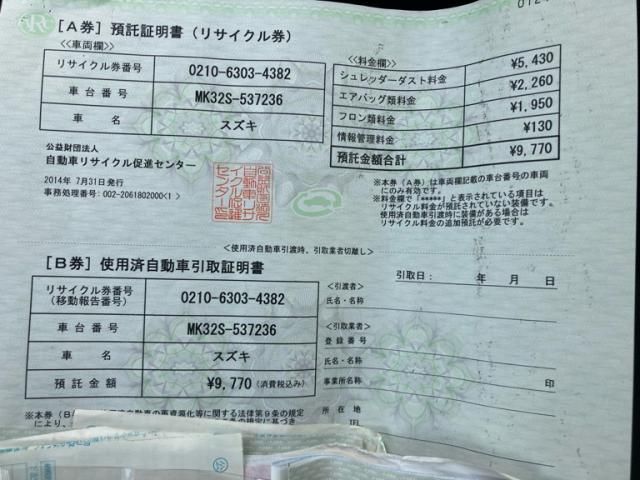 [A券] 預託証明書(リサイクル券)
<<車両欄>>
リサイクル券番号 0210-6303-4382
車台番号 MK32S-537236
車名 スズキ
公益財団法人
自動車リサイクル促進センター
2014年 7月31日発行
事務処理番号: 002-2061802000<1>
<<料金欄>>
シュレッダーダスト料金 ¥5,430
エアバッグ類料金 ¥2,260
フロン類料金 ¥1,950
情報管理料金 ¥130
預託金額合計 ¥9,770
※本券(A券)は車両欄記載の車台番号の車両
にのみ有効です。
※料金欄で「*****」と表示されている項目は
リサイクル料金が預託されていない装備です。
使用済自動車引渡時に装備がある場合は
リサイクル料金の追加預託が必要です。
<使用済自動車引渡時、引取業者切離し>
[B券] 使用済自動車引取証明書
リサイクル券番号
(移動報告番号) 0210-6303-4382
車台番号 MK32S-537236
車名 スズキ
預託金額 ¥9,770 (消費税込み)
引取日: 年 月 日
<引渡者>
氏名・名称
<引取業者>
登録番号
氏名・名称
事業所名称 印
所在地
※本券(B
自動車の再資源化等に関する法律第9条の規定
により、
の規定に基づき